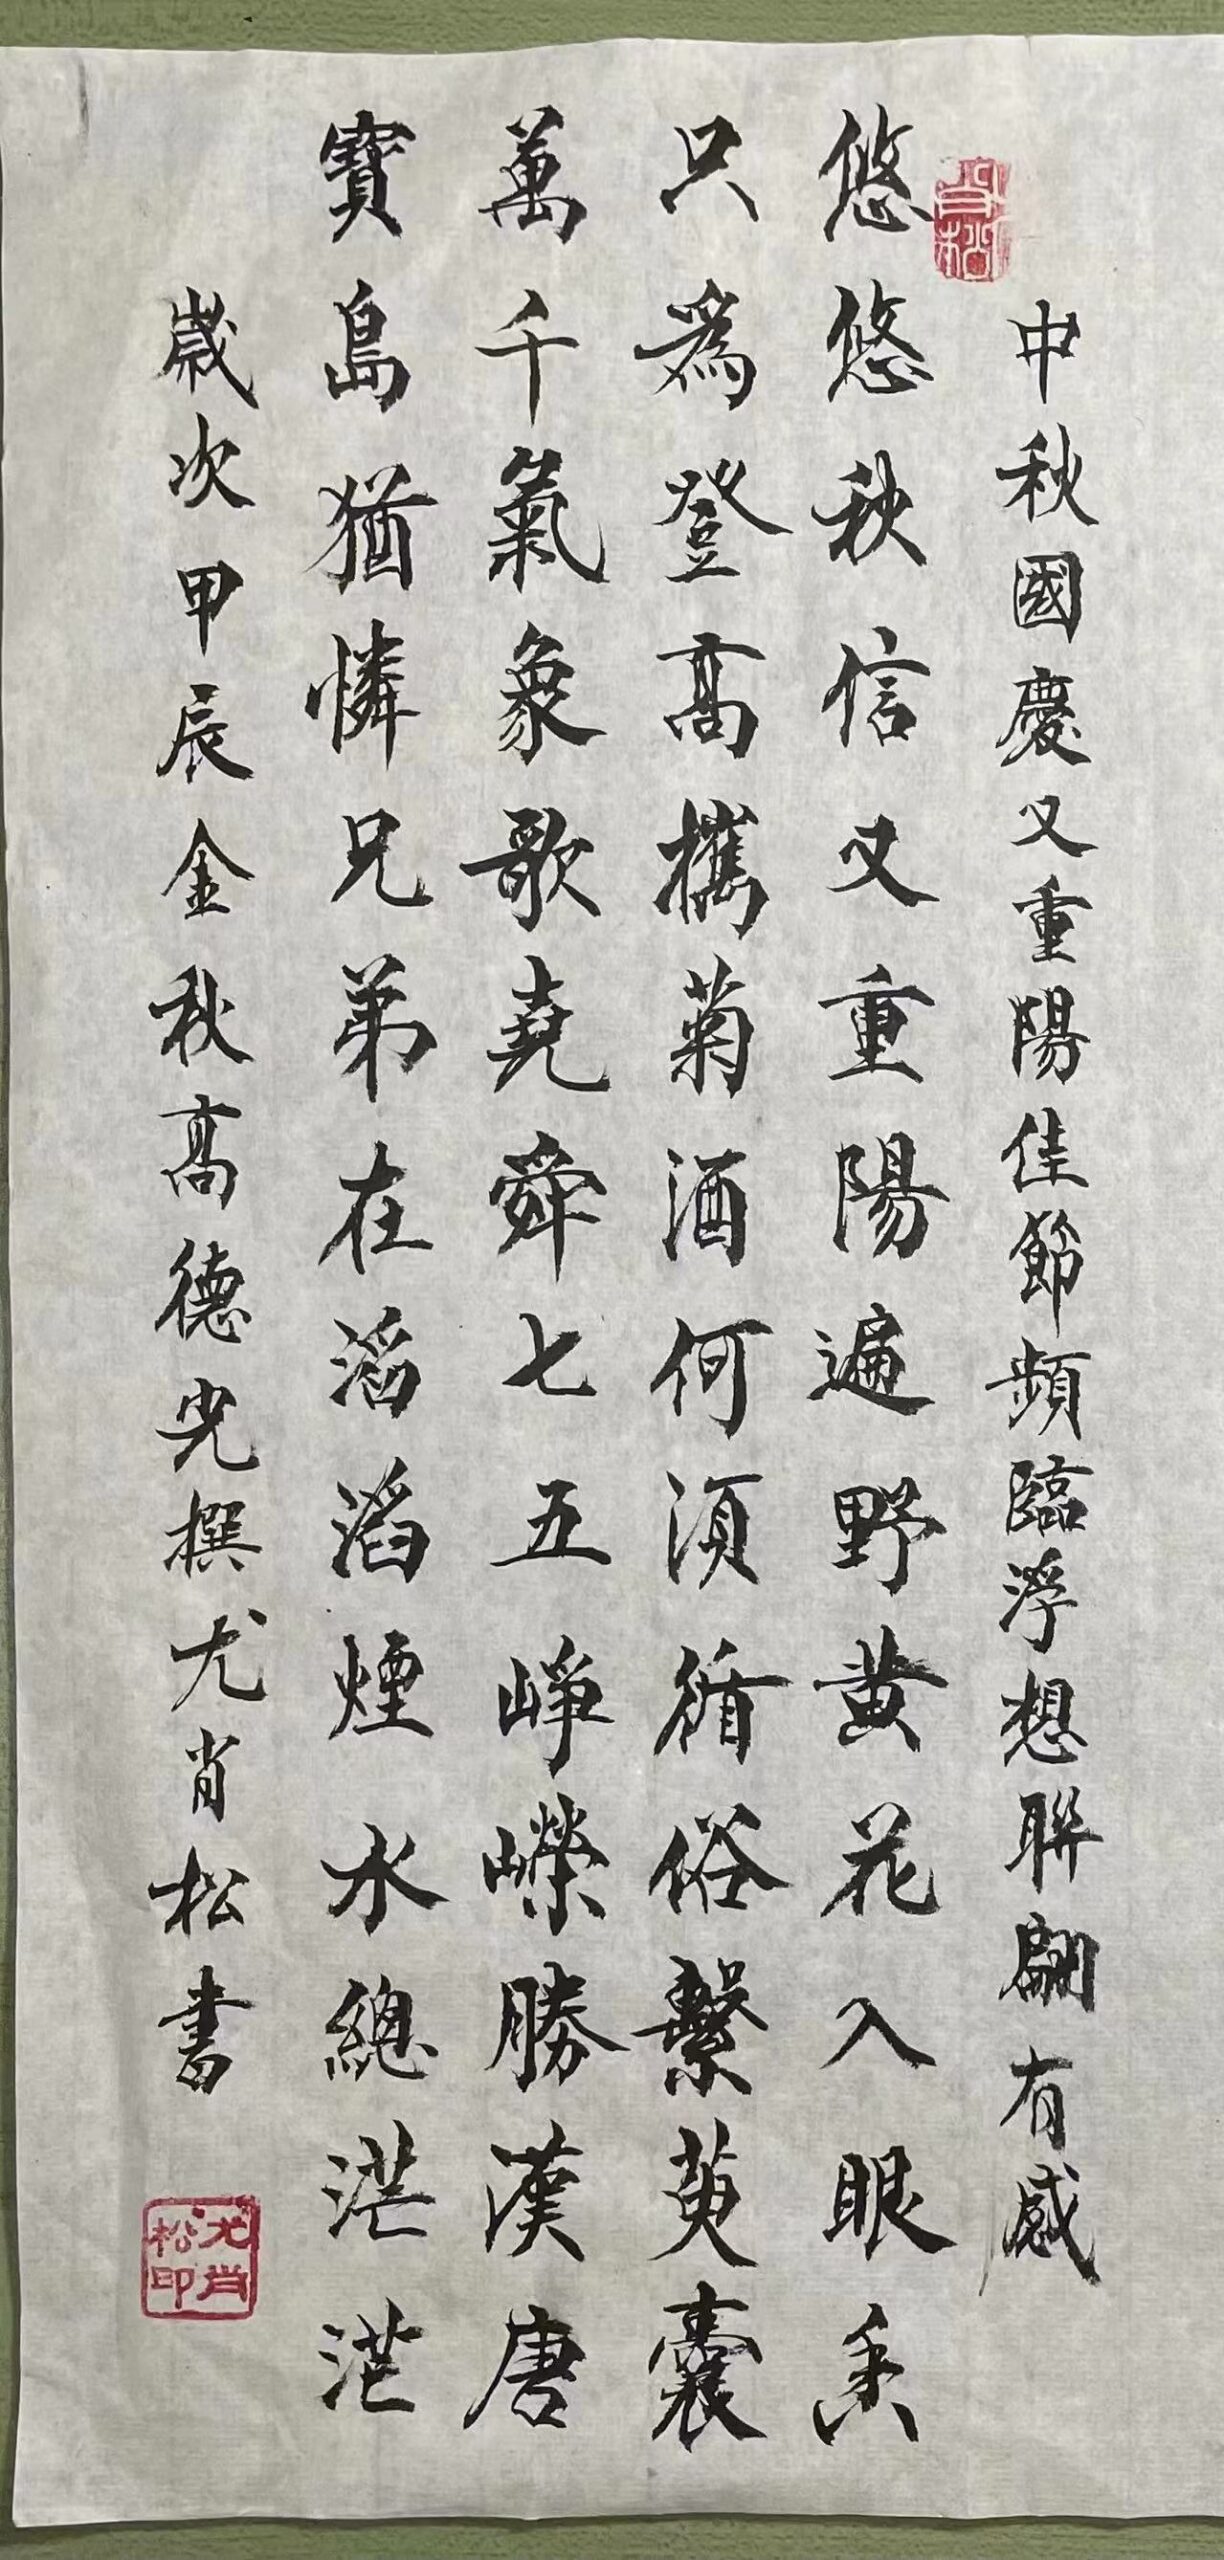 中秋國慶又重陽佳節頻臨浮想聯翩有感
悠悠秋信又重陽遍野黃花入眼香
只為登高攜菊酒何須循俗繫萸囊
萬千氣象歌堯舜七五崢嶸勝漢唐
寶島猶憐兄弟在滔滔煙水總茫茫
歲次甲辰金秋高德光撰尤肖松書
尤肖松印